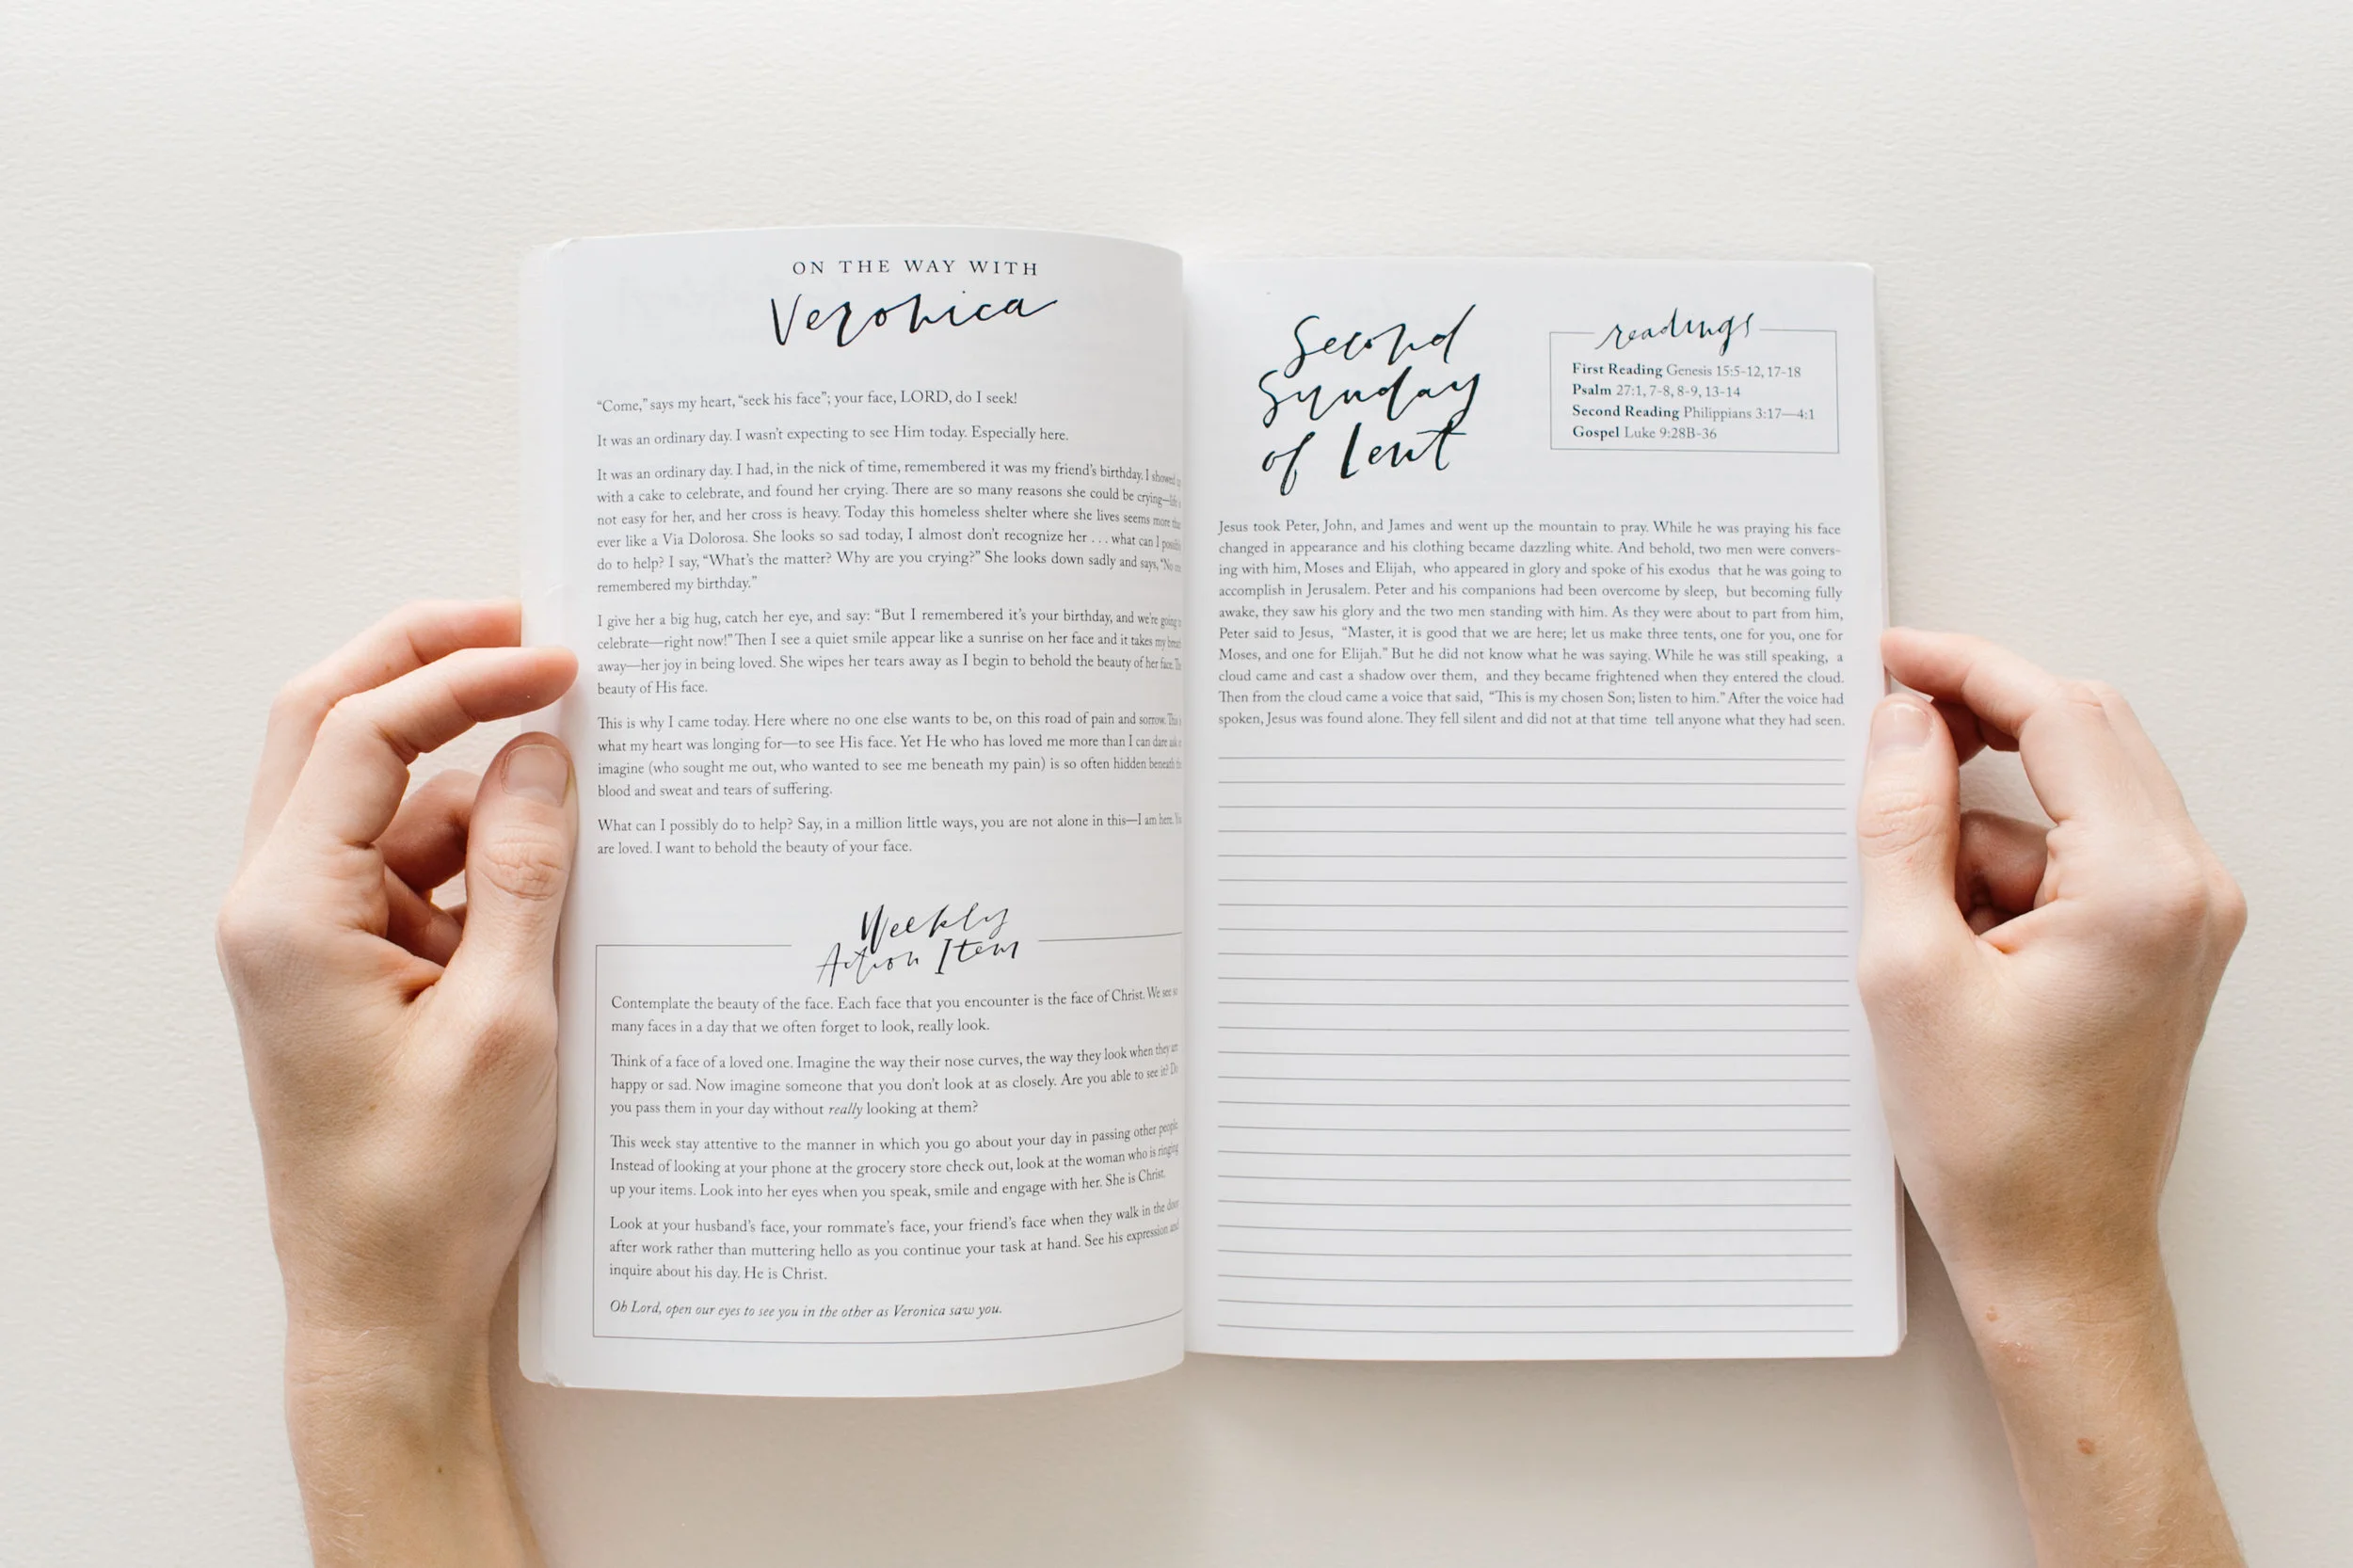 ON THE WAY WITH
Veronica
“Come,” says my heart, “seek his face”; your face, LORD, do I seek!
It was an ordinary day. I wasn’t expecting to see Him today. Especially here.
It was an ordinary day. I had, in the nick of time, remembered it was my friend’s birthday. I showed
with a cake to celebrate, and found her crying. There are so many reasons she could be crying—
not easy for her, and her cross is heavy. Today this homeless shelter where she lives seems more
ever like a Via Dolorosa. She looks so sad today, I almost don’t recognize her . . . what can I
do to help? I say, “What’s the matter? Why are you crying?” She looks down sadly and says, “No
remembered my birthday.”
I give her a big hug, catch her eye, and say: “But I remembered it’s your birthday, and we’re going
celebrate—right now!” Then I see a quiet smile appear like a sunrise on her face and it takes my
away—her joy in being loved. She wipes her tears away as I begin to behold the beauty of her face.
beauty of His face.
This is why I came today. Here where no one else wants to be, on this road of pain and sorrow.
what my heart was longing for—to see His face. Yet He who has loved me more than I can dare
imagine (who sought me out, who wanted to see me beneath my pain) is so often hidden beneath
blood and sweat and tears of suffering.
What can I possibly do to help? Say, in a million little ways, you are not alone in this—I am here.
are loved. I want to behold the beauty of your face.
Weekly
Action Item
Contemplate the beauty of the face. Each face that you encounter is the face of Christ. We see so
many faces in a day that we often forget to look, really look.
Think of a face of a loved one. Imagine the way their nose curves, the way they look when they
happy or sad. Now imagine someone that you don’t look at as closely. Are you able to see it? Do
you pass them in your day without really looking at them?
This week stay attentive to the manner in which you go about your day in passing other people.
Instead of looking at your phone at the grocery store check out, look at the woman who is ringing
up your items. Look into her eyes when you speak, smile and engage with her. She is Christ.
Look at your husband’s face, your rommate’s face, your friend’s face when they walk in the door
after work rather than muttering hello as you continue your task at hand. See his expression and
inquire about his day. He is Christ.
Oh Lord, open our eyes to see you in the other as Veronica saw you.
Second
Sunday
of Lent
readings
First Reading Genesis 15:5-12, 17-18
Psalm 27:1, 7-8, 8-9, 13-14
Second Reading Philippians 3:17—4:1
Gospel Luke 9:28B-36
Jesus took Peter, John, and James and went up the mountain to pray. While he was praying his face
changed in appearance and his clothing became dazzling white. And behold, two men were convers-
ing with him, Moses and Elijah, who appeared in glory and spoke of his exodus that he was going to
accomplish in Jerusalem. Peter and his companions had been overcome by sleep, but becoming fully
awake, they saw his glory and the two men standing with him. As they were about to part from him,
Peter said to Jesus, “Master, it is good that we are here; let us make three tents, one for you, one for
Moses, and one for Elijah.” But he did not know what he was saying. While he was still speaking, a
cloud came and cast a shadow over them, and they became frightened when they entered the cloud.
Then from the cloud came a voice that said, “This is my chosen Son; listen to him.” After the voice had
spoken, Jesus was found alone. They fell silent and did not at that time tell anyone what they had seen.